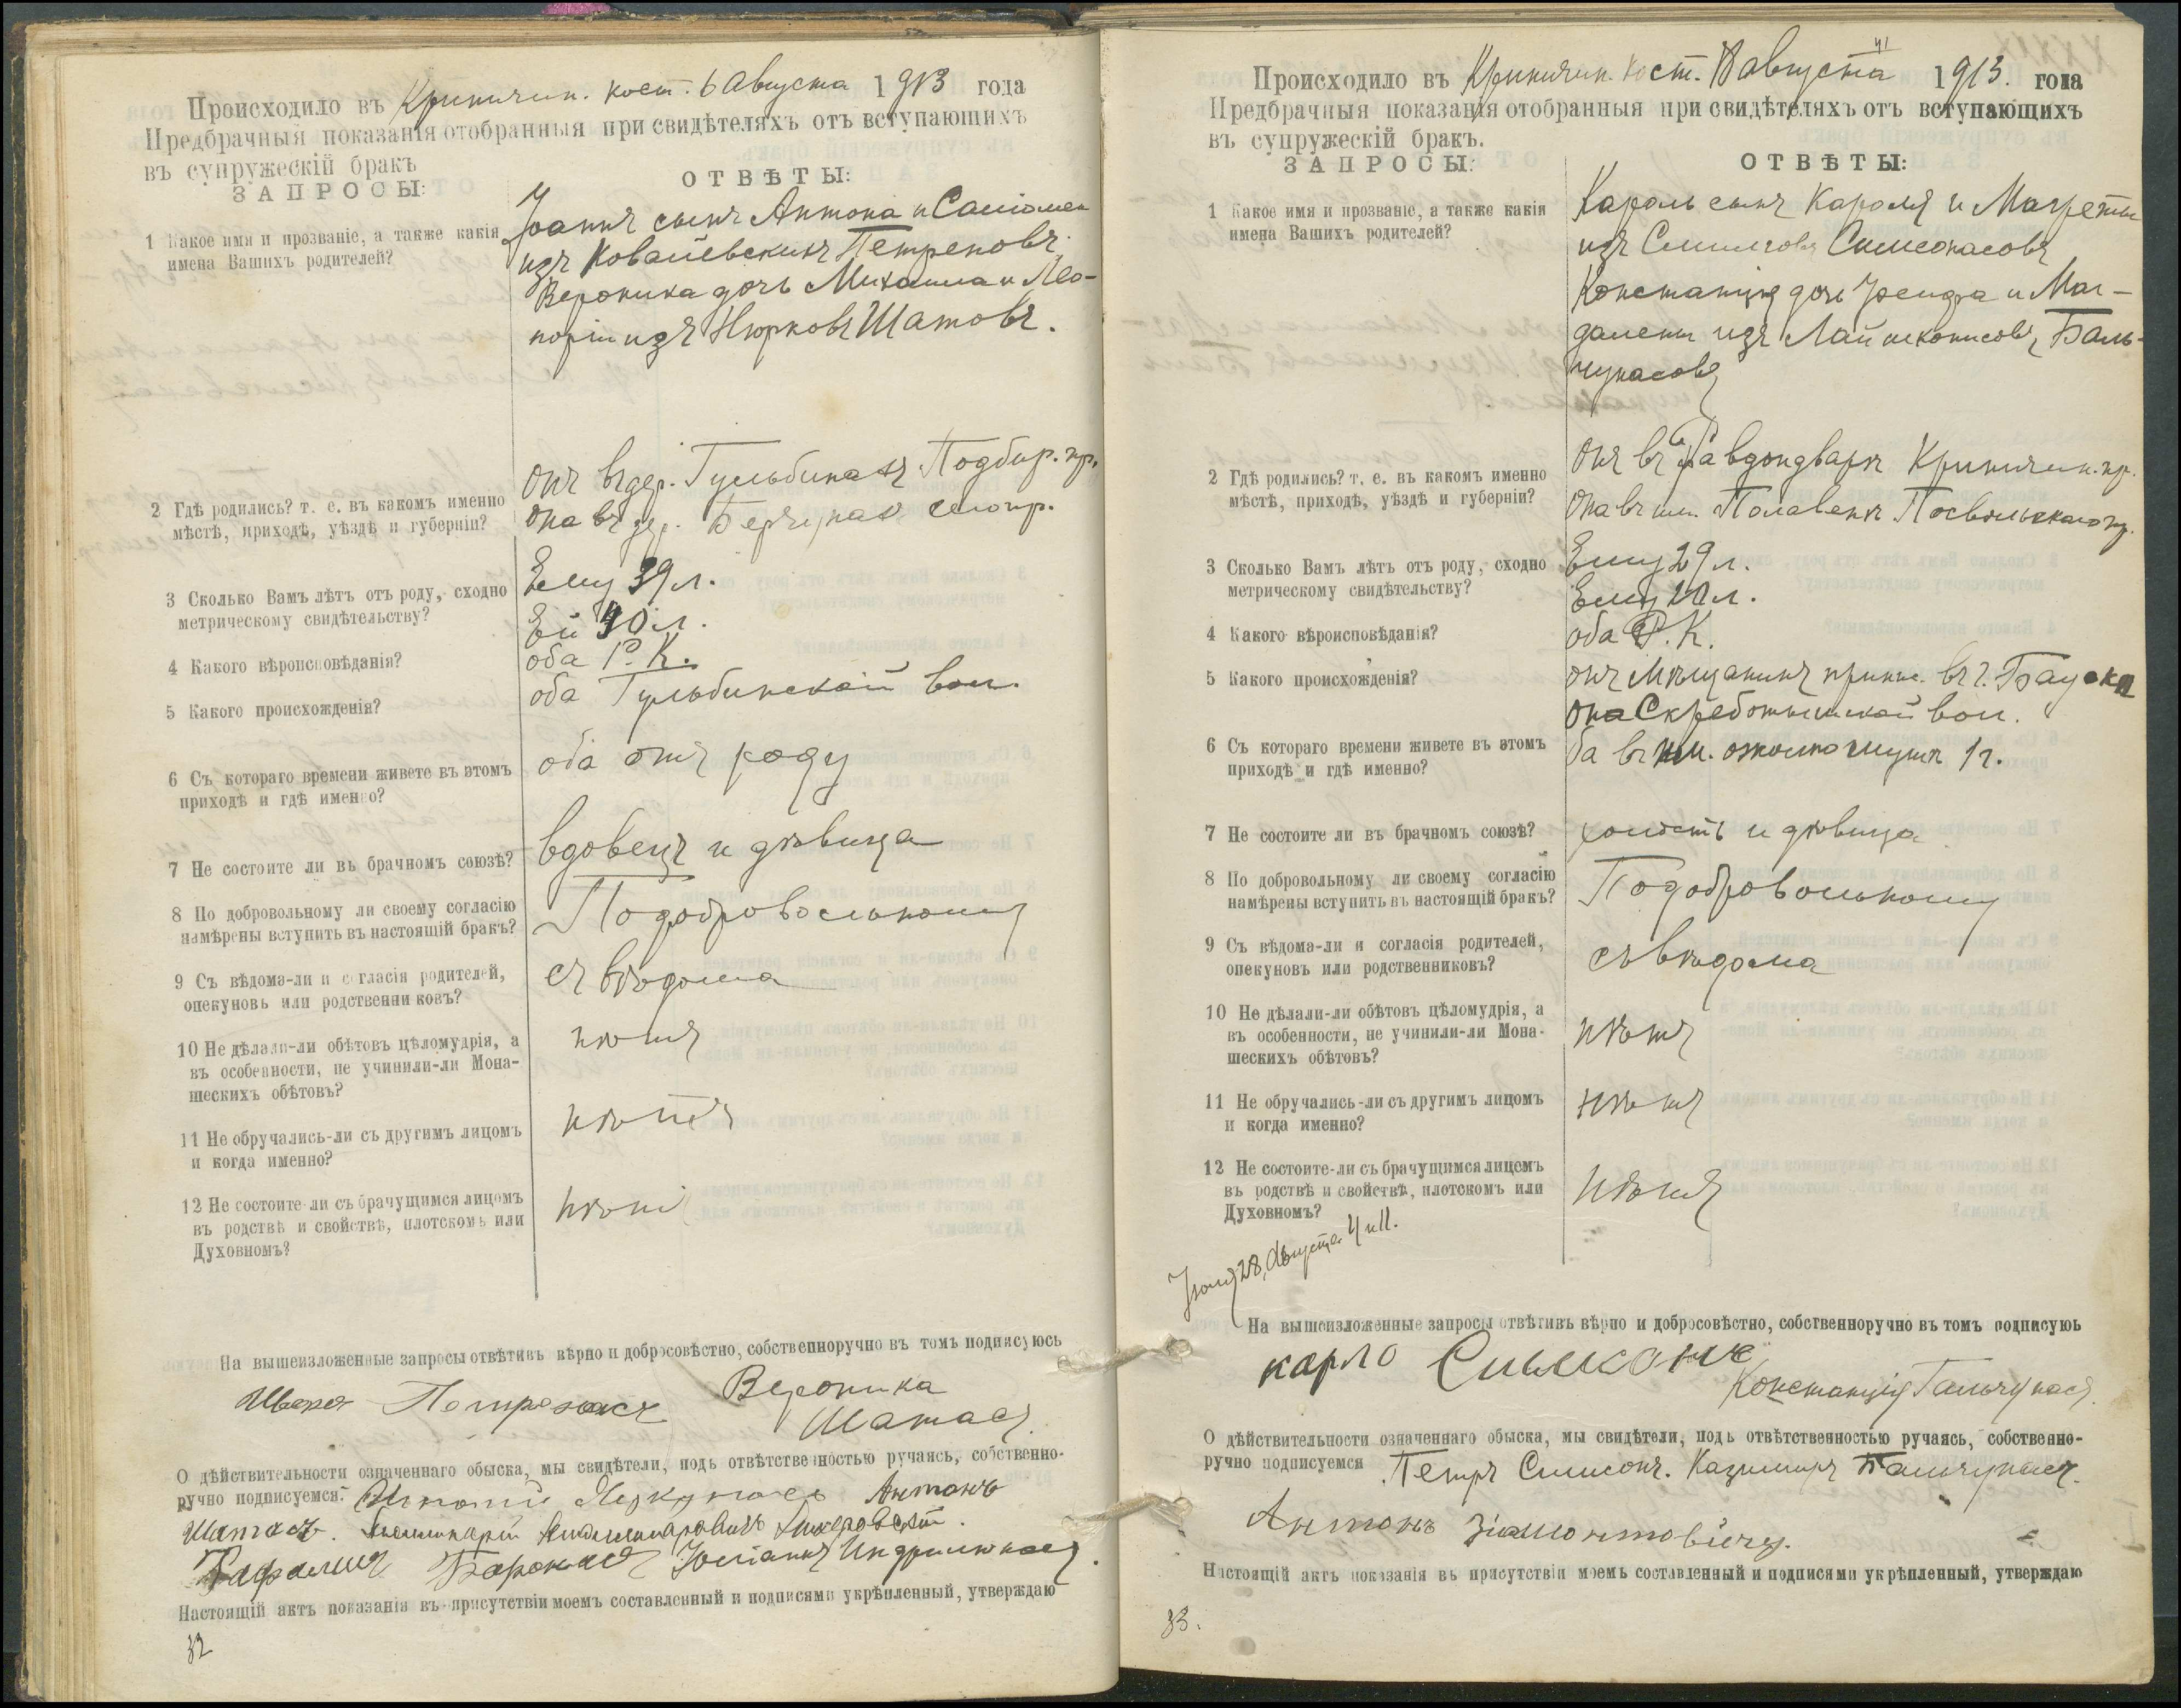 Происходило въ Криничин. кост. 6 Августа 1913 года
Предбрачныя показанія отобранныя при свидѣтеляхъ отъ вступающихъ
въ супружескій бракъ
ЗАПРОСЫ:
ОТВѢТЫ:
1 Какое имя и прозваніе, а также какія
имена Вашихъ родителей?
Іоаннъ сынъ Антона и Саломеи
изъ Ковалевскихъ Петреновъ.
Вероника дочь Михаила и Лео-
норіи изъ Нюрковъ Шатовъ.
2 Гдѣ родились? т. е. въ какомъ именно
мѣстѣ, приходѣ, уѣздѣ и губерніи?
Онъ въ дер. Гульбинахъ Подбир. пр.
Она въ дер. сего пр.
3 Сколько Вамъ лѣтъ отъ роду, сходно
метрическому свидѣтельству?
Ему 39 л.
Ей 40 л.
4 Какого вѣроисповѣданія?
оба Р. К.
5 Какого происхожденія?
оба Гульбинской вол.
6 Съ котораго времени живете въ этомъ
приходѣ и гдѣ именно?
оба отъ роду
7 Не состоите ли въ брачномъ союзѣ?
вдовецъ и дѣвица
8 По добровольному ли своему согласію
намѣрены вступить въ настоящій бракъ?
По добровольному
9 Съ вѣдома-ли и согласія родителей,
опекуновъ или родственниковъ?
съ вѣдома
10 Не дѣлали-ли обѣтовъ цѣломудрія, а
въ особенности, не учинили-ли Мона-
шескихъ обѣтовъ?
нѣтъ
11 Не обручались-ли съ другимъ лицомъ
и когда именно?
нѣтъ
12 Не состоите-ли съ брачущимся лицомъ
въ родствѣ и свойствѣ, плотскомъ или
Духовномъ?
нѣтъ
На вышеизложенные запросы отвѣтивъ вѣрно и добросовѣстно, собственноручно въ томъ подписуюсь
Вероника
Шатасъ.
О дѣйствительности означеннаго обыска, мы свидѣтели, подъ отвѣтственностью ручаясь, собственно-
ручно подписуемся: Антонъ
Шатасъ.
Юліанъ
Настоящій актъ показанія въ присутствіи моемъ составленный и подписями укрѣпленный, утверждаю
32
Происходило въ Криничин. кост. августа 1913. года
Предбрачныя показанія отобранныя при свидѣтеляхъ отъ вступающихъ
въ супружескій бракъ.
ЗАПРОСЫ:
ОТВѢТЫ:
1 Какое имя и прозваніе, а также какія
имена Вашихъ родителей?
Кароль сынъ Кароля и Магреты
изъ Симсонасовъ
Констанція дочь Іосифа и Маг-
далены изъ Баль-
чунасовъ
2 Гдѣ родились? т. е. въ какомъ именно
мѣстѣ, приходѣ, уѣздѣ и губерніи?
Онъ въ Криничин. пр.
Она въ им. Посвольскаго пр.
3 Сколько Вамъ лѣтъ отъ роду, сходно
метрическому свидѣтельству?
Ему 29 л.
Ему 20 л.
4 Какого вѣроисповѣданія?
оба Р. К.
5 Какого происхожденія?
онъ Мѣщанинъ припис. въ г. Бауска
она Скреботышской вол.
6 Съ котораго времени живете въ этомъ
приходѣ и гдѣ именно?
ба въ им. 1 г.
7 Не состоите ли въ брачномъ союзѣ?
холостъ и дѣвица
8 По добровольному ли своему согласію
намѣрены вступить въ настоящій бракъ?
По добровольному
9 Съ вѣдома-ли и согласія родителей,
опекуновъ или родственниковъ?
съ вѣдома
10 Не дѣлали-ли обѣтовъ цѣломудрія, а
въ особенности, не учинили-ли Мона-
шескихъ обѣтовъ?
нѣтъ
11 Не обручались-ли съ другимъ лицомъ
и когда именно?
нѣтъ
12 Не состоите-ли съ брачущимся лицомъ
въ родствѣ и свойствѣ, плотскомъ или
Духовномъ?
нѣтъ
Іюля 28, Августа 4 и 11.
На вышеизложенные запросы отвѣтивъ вѣрно и добросовѣстно, собственноручно въ томъ подписуюь
карло
Констанція
О дѣйствительности означеннаго обыска, мы свидѣтели, подъ отвѣтственностью ручаясь, собственно-
ручно подписуемся Петръ Симсонъ. Казимиръ
Антонъ
Настоящій актъ показанія въ присутствіи моемъ составленный и подписями укрѣпленный, утверждаю
33.